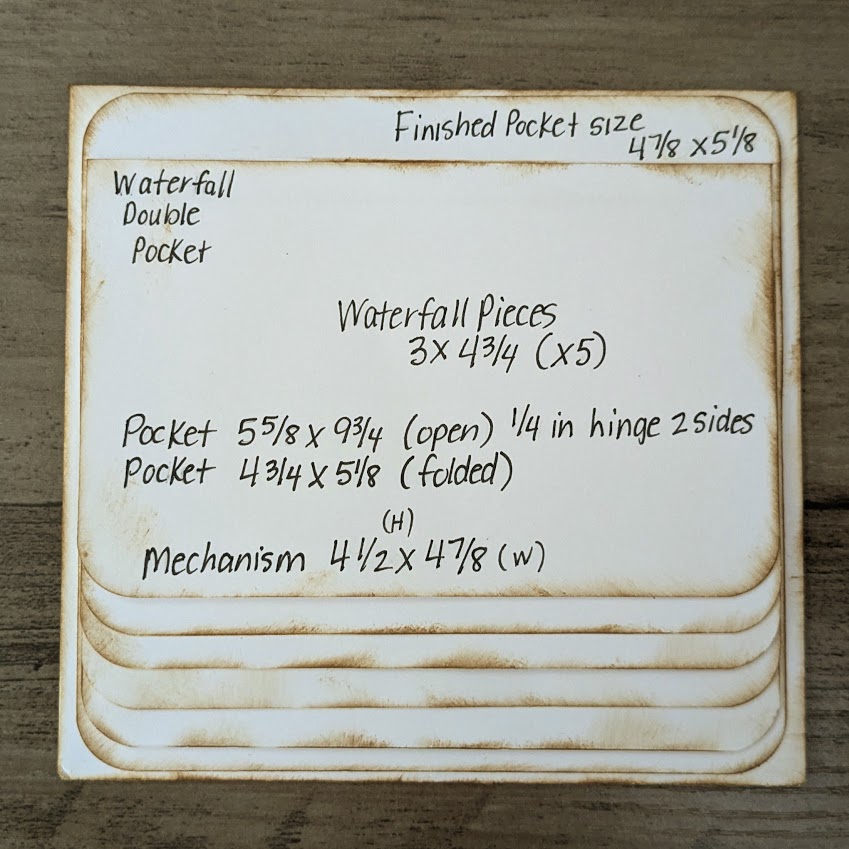 Finished Pocket size
4 7/8 x 5 1/8
Waterfall
Double
Pocket
Waterfall Pieces
3 x 4 3/4 (x5)
Pocket 5 5/8 x 9 3/4 (open) 1/4 in hinge 2 sides
Pocket 4 3/4 x 5 1/8 (folded)
(H)
Mechanism 4 1/2 x 4 7/8 (W)